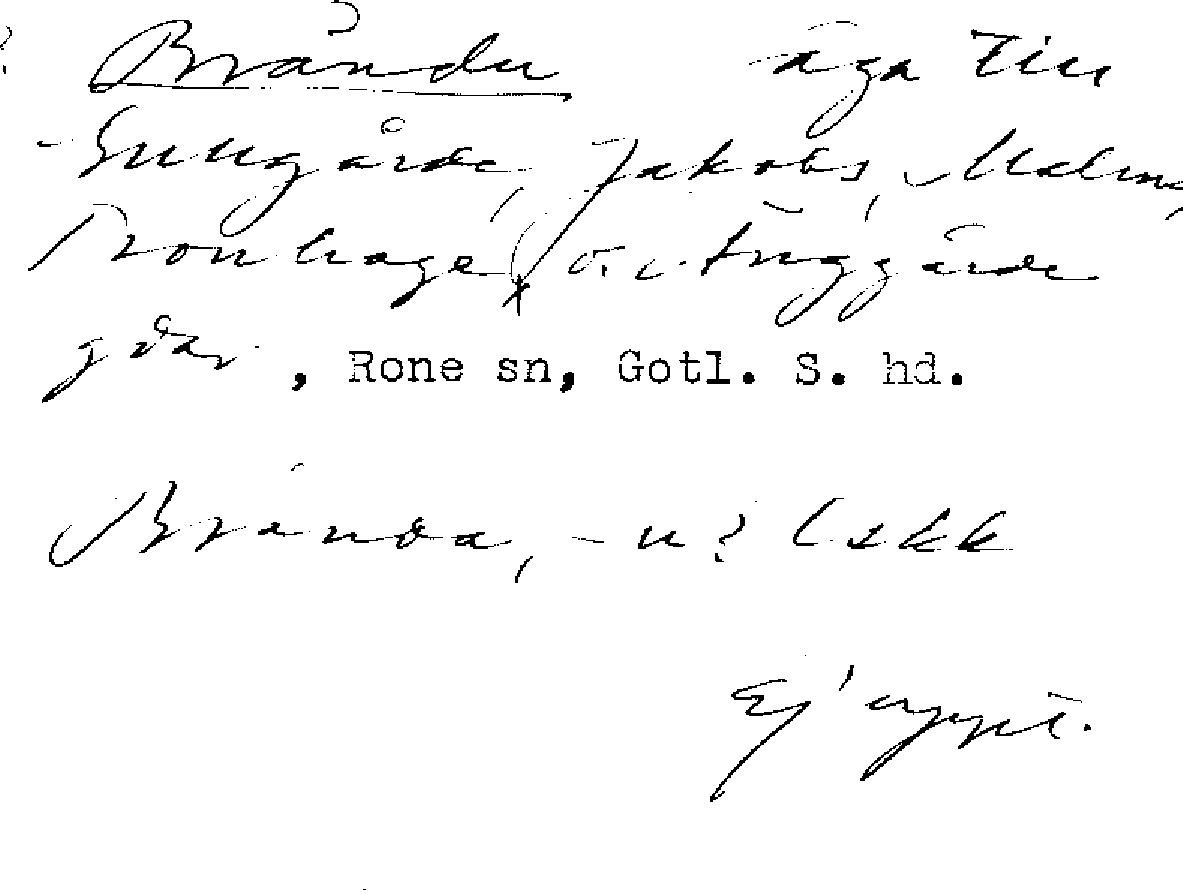 ? Brändu äga till
Gullgårde, Jakobs, Malms,
Tronhage, o. Tuggårde
gdar, Rone sn, Gotl. S. hd.
Brända, -u? Lskk
Ej uppt.